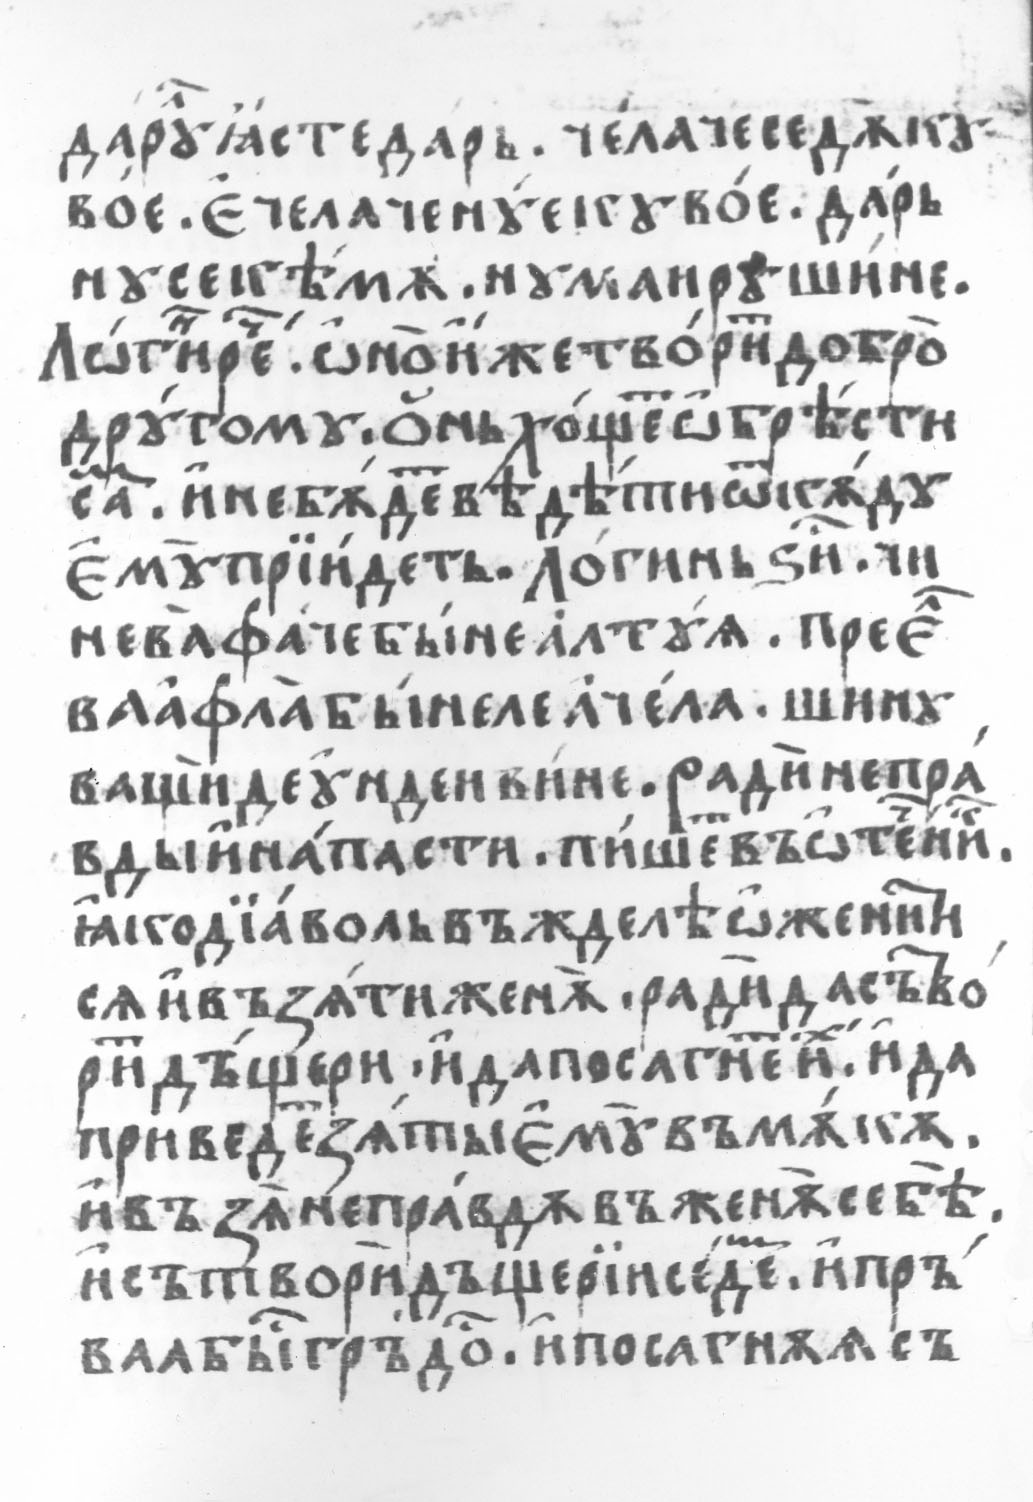 да́рꙋ꙽л ꙗ҆́сте да́рь . че́ла че се дѫ кꙋ
во́е . є҆ чела че нꙋ́ е кꙋ во́е . да́рь
нꙋ се кѣ́мѫ . нꙋмаи рꙋши́не .
Лѡ́гїⷩ҇ реⷱ҇́ . ѡ҆но̀ и҆́же твори́ⷮ добро̀
дрꙋ́гомꙋ . ѻ҆нь хо́щеⷮ ѡ҆брѣ́сти
сѧⷨ҇ . и҆ не бѫ́деⷮ вѣдѣ́ти ѿкѫ́дꙋ
є҆мꙋ̀ прїи́деть . Ло́гинь ѕиⷧ҇ . чи
не ва̀ фа́че бы́не а҆лтꙋ́ѧ . пре є҆ⷧ
ва а҆фла̀ бы́неле ачéла . ши нꙋ
ва шѝ де ꙋ҆нде и ви́не . Радѝ непра́
вды и҆ напасти . пи́шеⷮ въ ѡ҆теⷱ҇ниⷦ҇ .
ꙗ҆́ко дїа́воль въжделѣ ѡ҆жениⷮи
сѧ и҆ възѧ́ти женѫ̀ . радѝ да сътво́
риⷮ дъ́щери . и҆ да посагнеⷮ иⷯ . и҆ да
приведеⷮ зѧ́ты є҆мꙋ̀ въ мѫ́кѫ .
и҆ възѧ̀ непра́вдѫ въ женѫ̀ себѣ̀ .
и҆ сътворѝ дъщерїи се́дⷨе . и҆ пръ́
ваа бы̀ гръⷣдоⷭ҇ . и҆ посагнѫѧ съ